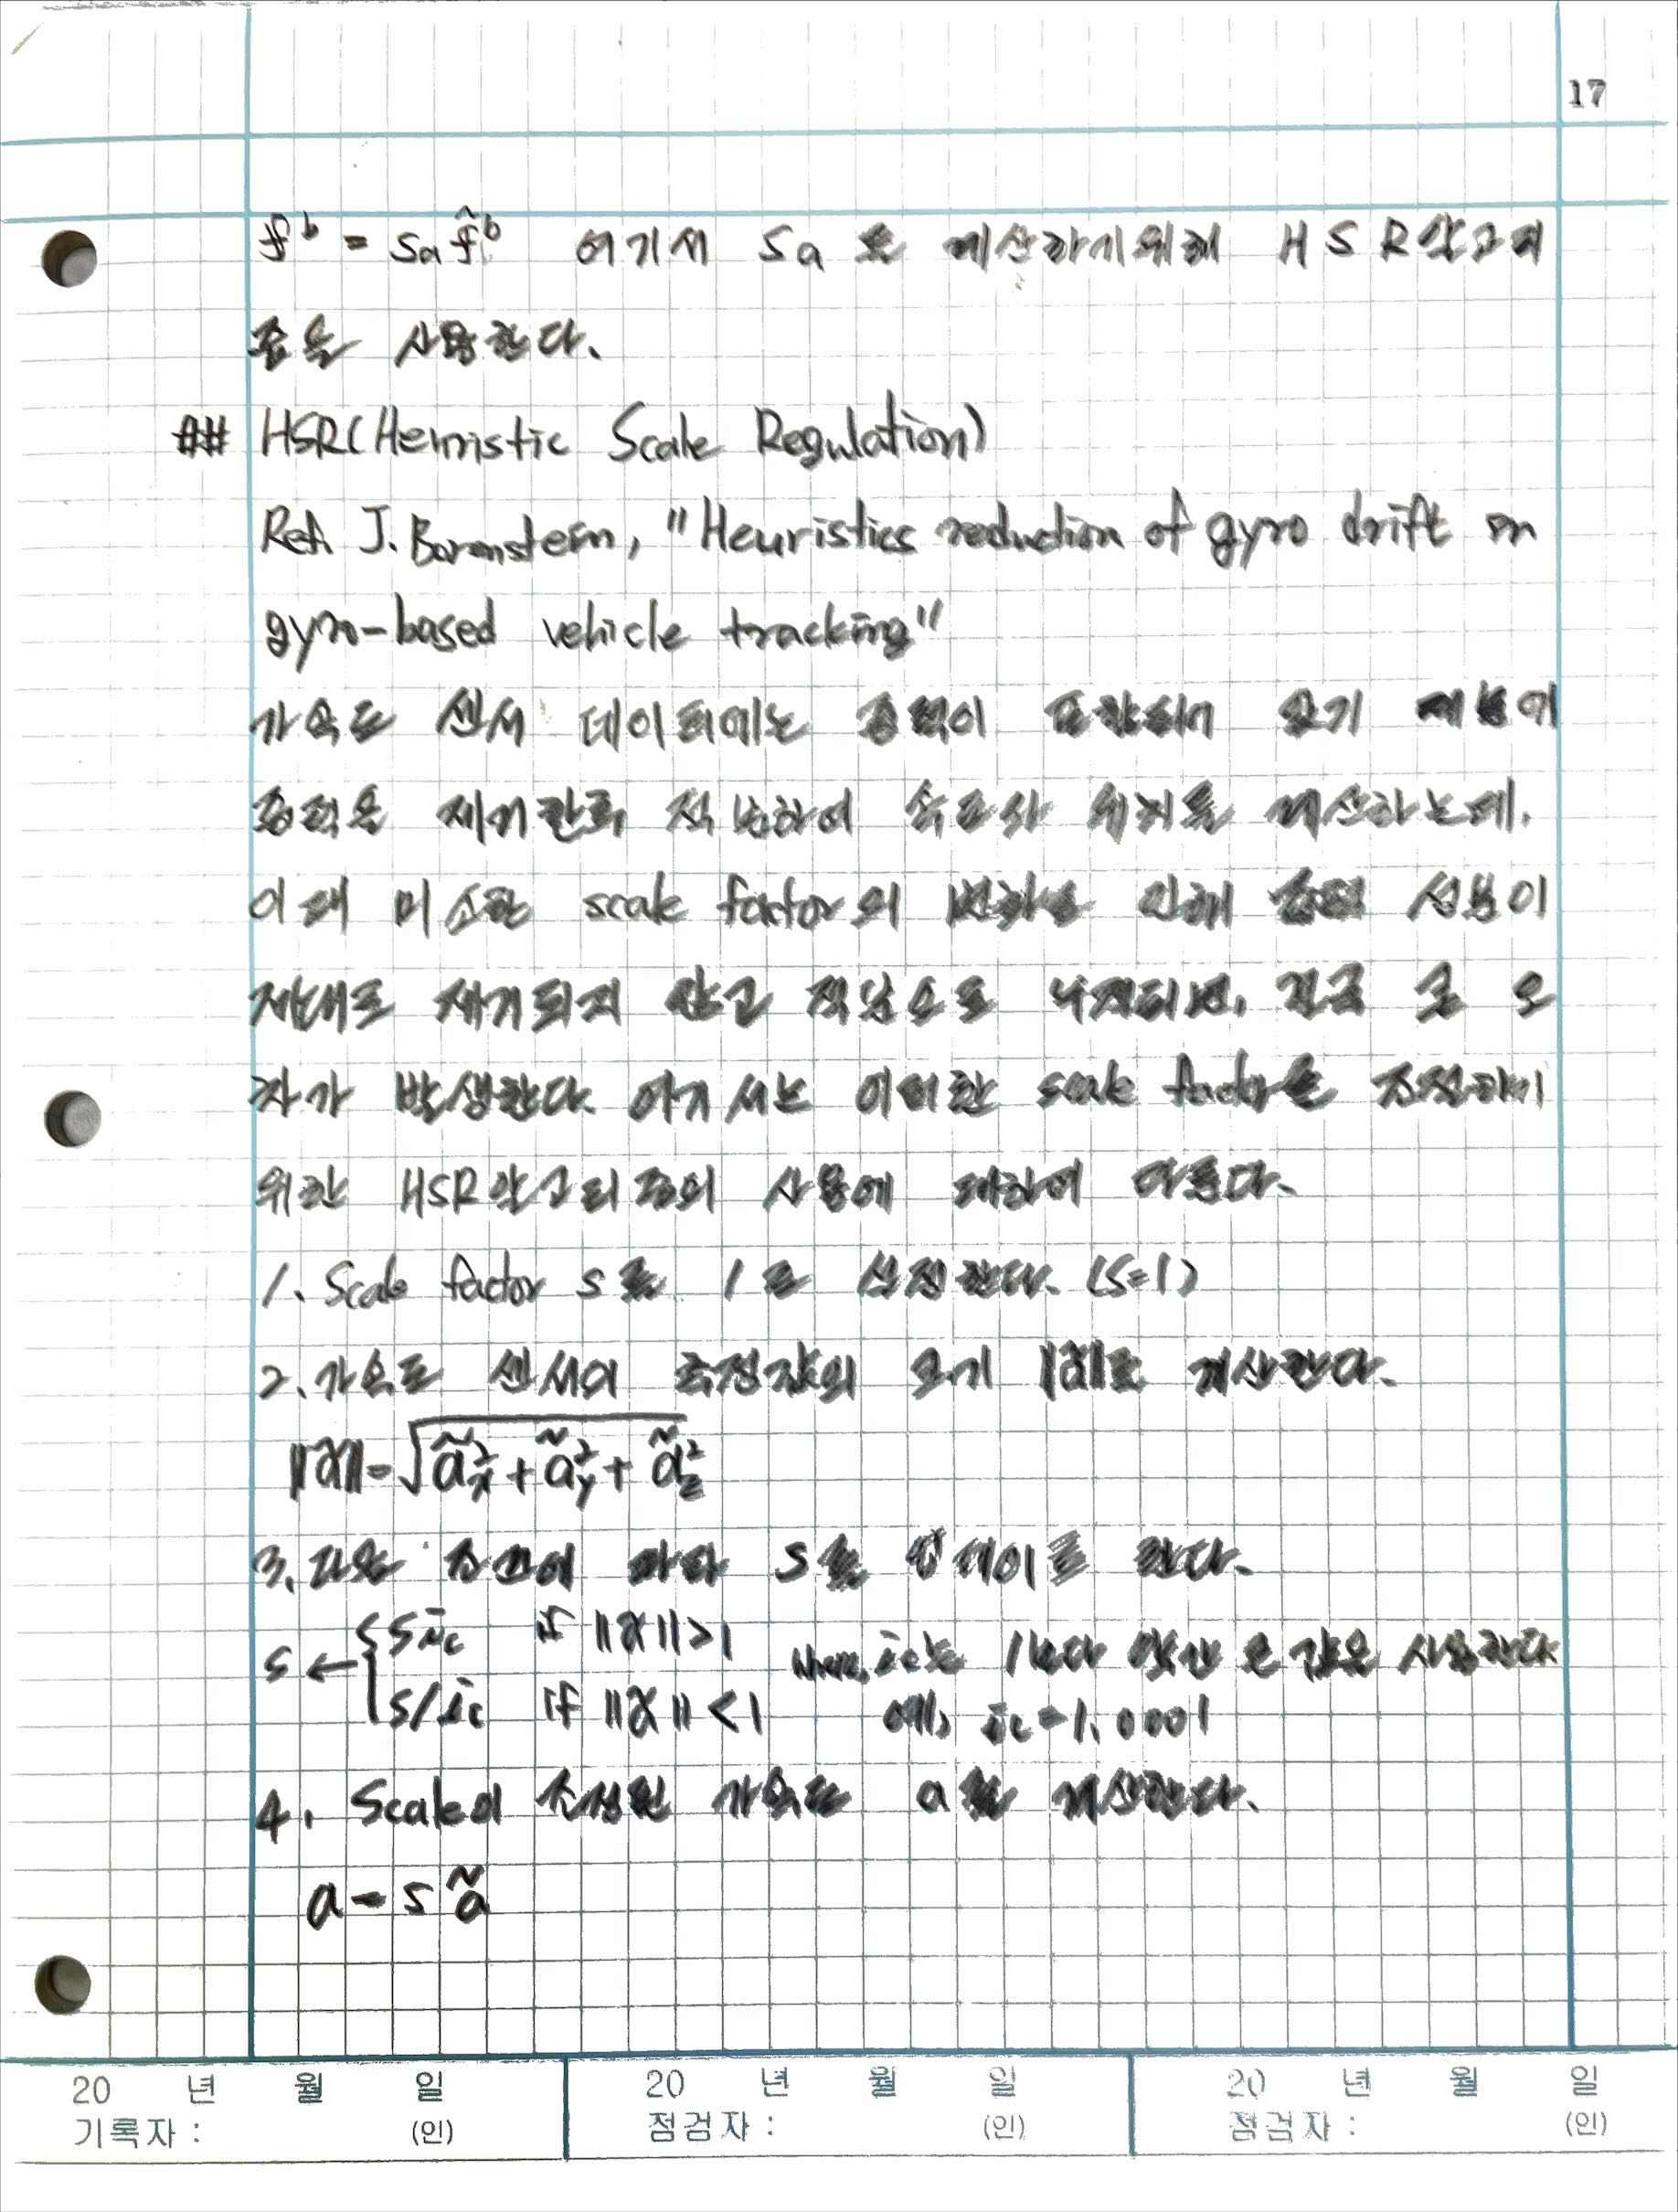 17
f^b = Sa f̂^b 여기서 Sa 를 계산하기위해 HSR알고리
즘을 사용한다.
## HSR(Heuristic Scale Regulation)
Ref. J. Borenstein, "Heuristics reduction of gyro drift in
gyro-based vehicle tracking"
가속도 센서 데이터에는 중력이 포함되어 있기 때문에
중력을 제거한후 적분하여 속도와 위치를 계산하는데.
이때 미소한 scale factor의 변화로 인해 중력 성분이
제대로 제거되지 않고 적분으로 누적되면, 결국 큰 오
차가 발생한다. 여기서는 이러한 scale factor를 조정하기
위한 HSR알고리즘의 사용에 대하여 다룬다.
1. Scale factor s를 1로 설정한다. (S=1)
2. 가속도 센서의 측정값의 크기 ‖ã‖를 계산한다.
‖ã‖=√(ã²x + ã²y + ã²z)
3. 다음 조건에 따라 S를 업데이트 한다.
s ← { S ic if ‖ã‖>1 where, ic는 1보다 약간 큰 값을 사용한다
s/ic if ‖ã‖<1 예, ic=1.0001
4. Scale이 조정된 가속도 a를 계산한다.
a = s ã
20 년 월 일 20 년 월 일 20 년 월 일
기록자 : (인) 점검자 : (인) 점검자 : (인)